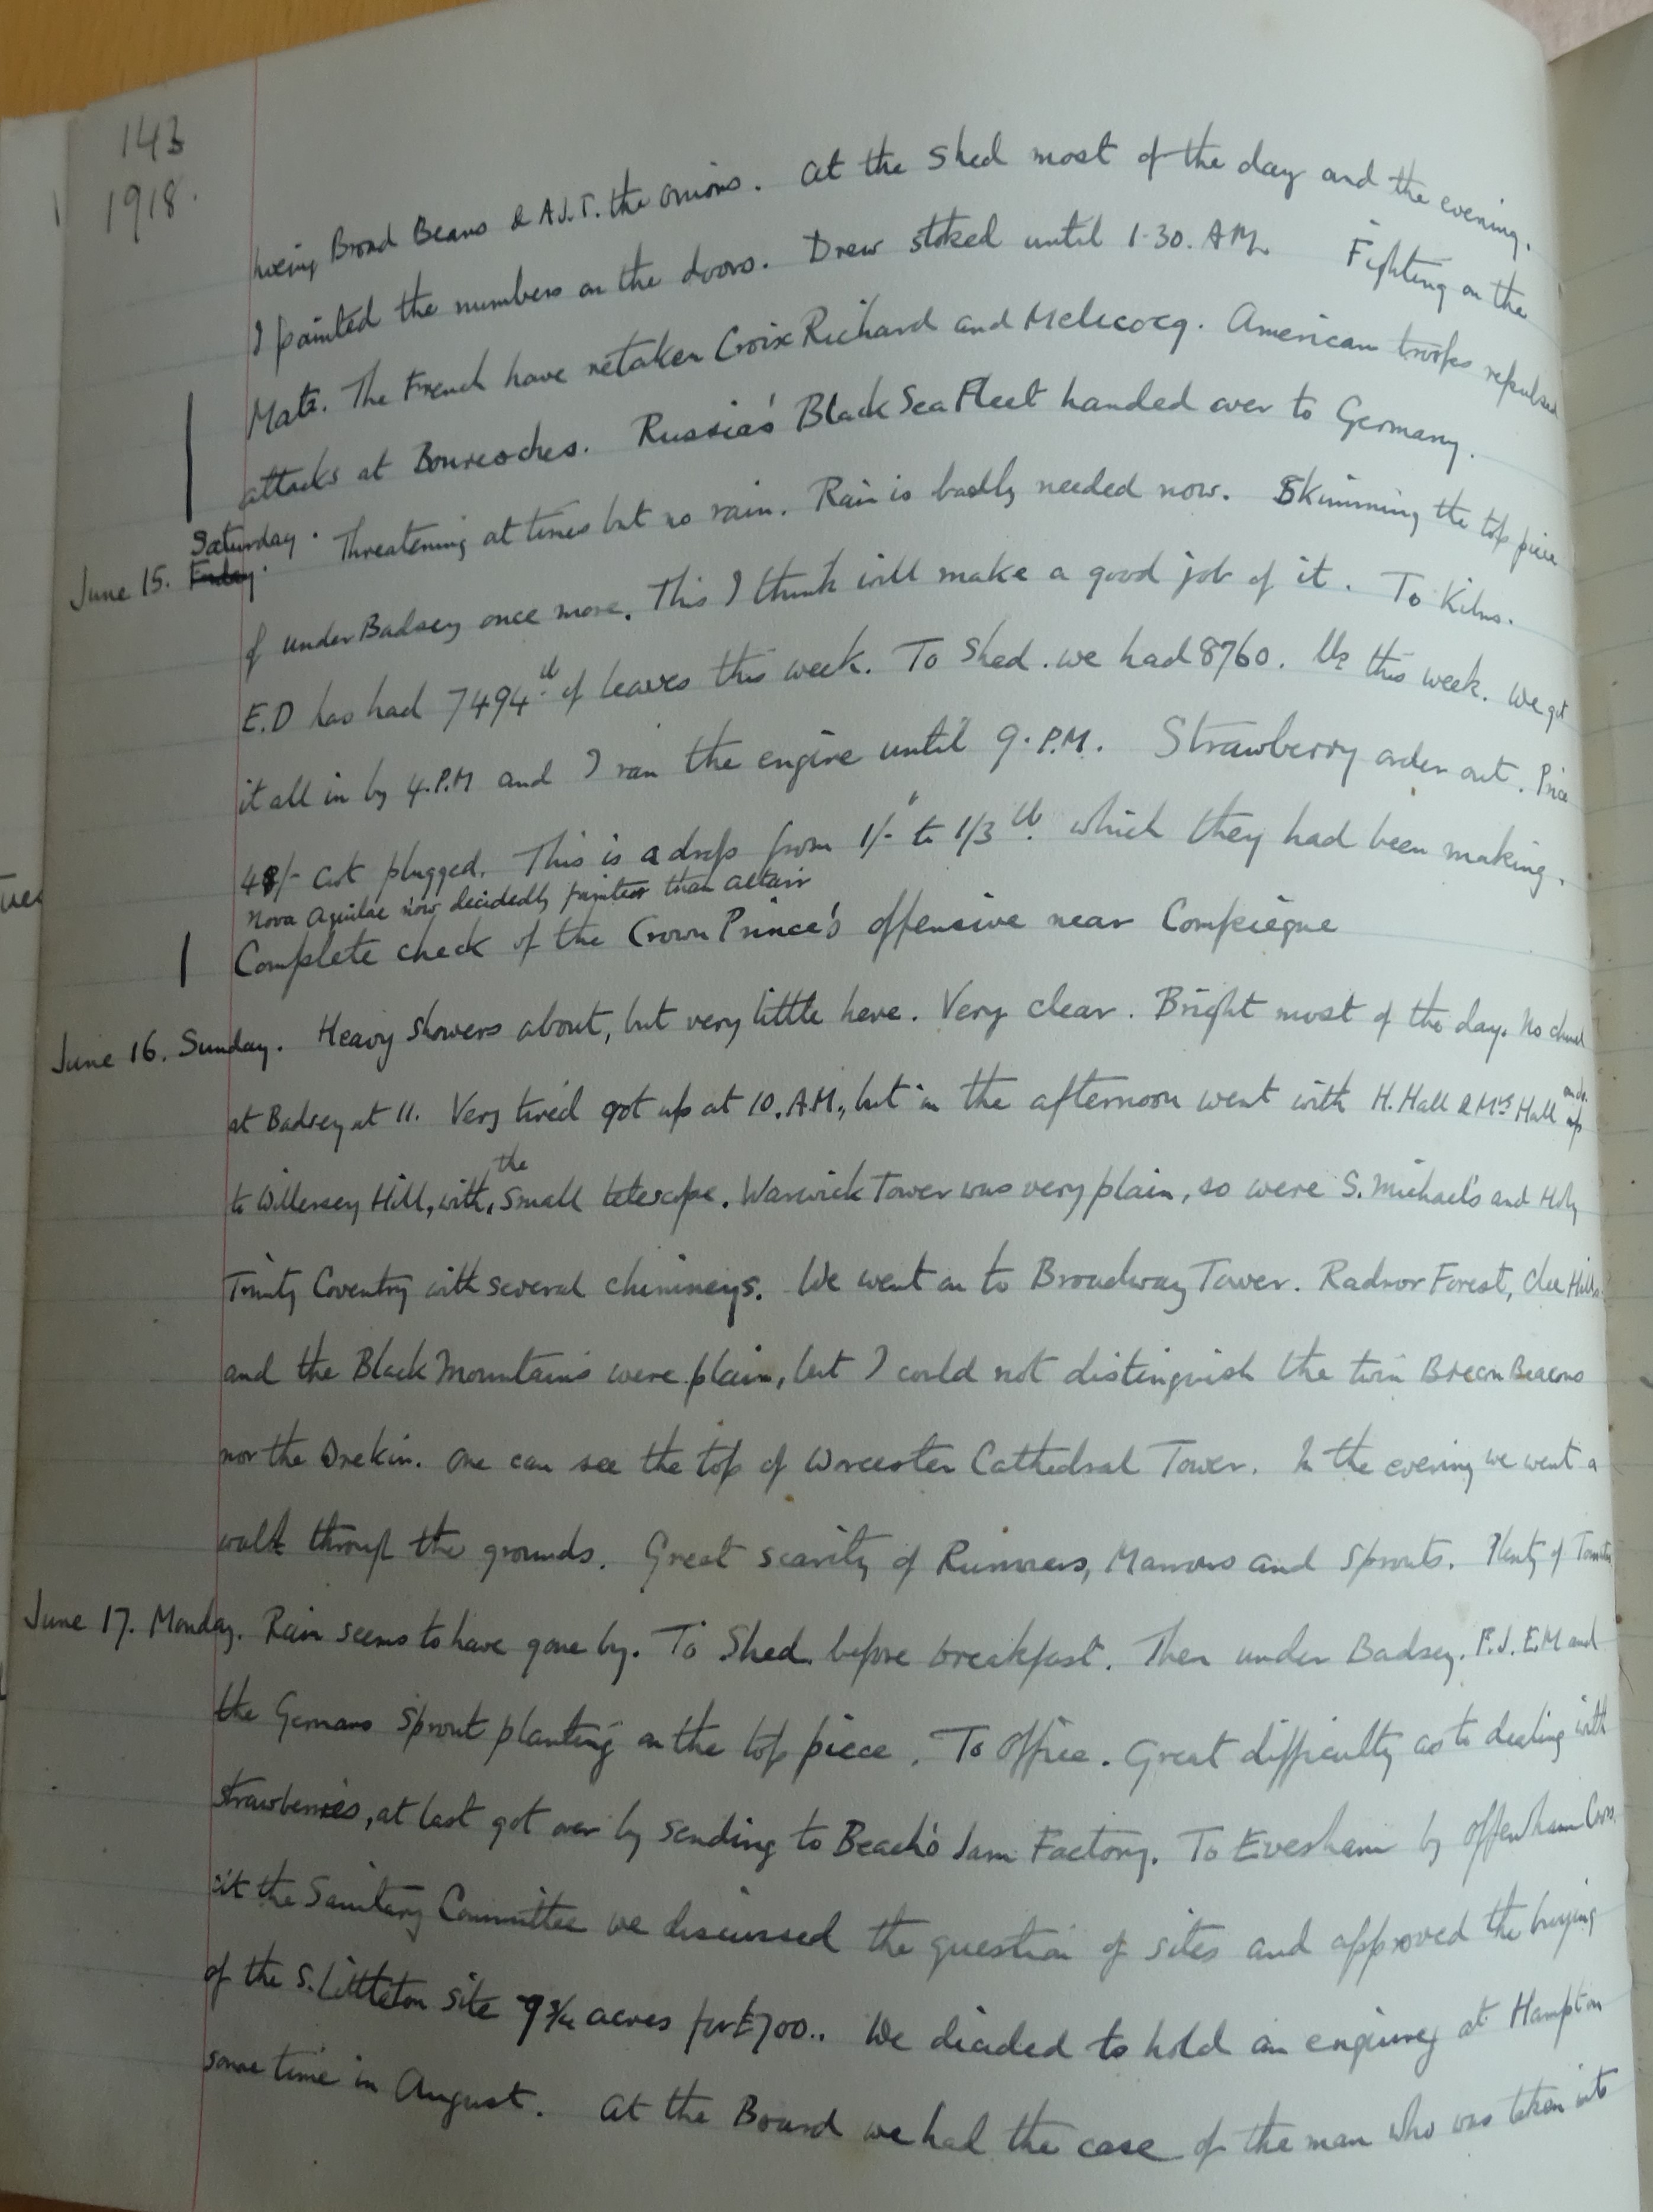 143
1918.
hoeing Broad Beans & A.J.T. the onions. At the Shed most of the day and the evening.
I painted the numbers on the doors. Drew stoked until 1-30. A.M. Fighting on the
Matz. The French have retaken Croix Richard and Melicocq. American troops repulsed
attacks at Boureoches. Russia's Black Sea Fleet handed over to Germany.
June 15. Saturday. Friday. Threatening at times but no rain. Rain is badly needed now. Skimming the top piece
of under Badsey once more. This I think will make a good job of it. To Kilns.
E.D has had 7494 lb of leaves this week. To Shed. we had 8760. lbs this week. We got
it all in by 4.P.M and I ran the engine until 9.P.M. Strawberry order out. Price
48/- cwt plugged. This is a drop from 1/- to 1/3 lb. which they had been making.
Nova Aquilae now decidedly fainter than Altair
Complete check of the Crown Prince's offensive near Compiegne
June 16. Sunday. Heavy showers about, but very little here. Very clear. Bright most of the day. No church
at Badsey at 11. Very tired got up at 10.A.M., but in the afternoon went with H. Hall & Mrs Hall up
to Willersey Hill, with the small telescope. Warwick Tower was very plain, so were S. Michael's and Holy
Trinity Coventry with several chimneys. We went on to Broadway Tower. Radnor Forest, Clee Hills
and the Black Mountains were plain, but I could not distinguish the twin Brecon Beacons
nor the Wrekin. One can see the top of Worcester Cathedral Tower. In the evening we went a
walk through the grounds. Great scarcity of Runners, Marrows and Sprouts. Plenty of
June 17. Monday. Rain seems to have gone by. To Shed before breakfast. Then under Badsey. F.J. E.M and
the Germans Sprout planting on the top piece. To Office. Great difficulty as to dealing with
strawberries, at last got over by sending to Beach's Jam Factory. To Evesham by Offenham Cross.
At the Sanitary Committee we discussed the question of sites and approved the buying
of the S. Littleton site 9¾ acres for £700.. We decided to hold an enquiry at Hampton
some time in August. At the Board we had the case of the man who was taken into